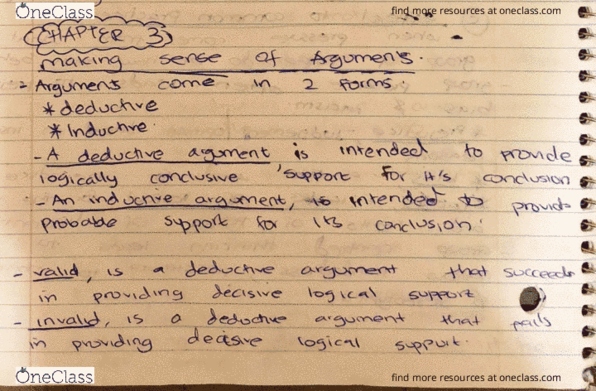 OneClass
find more resources at oneclass.com
CHAPTER 3
making sense of Argumen's.
Argumen's come in 2 forms.
* deductive
* Inductive.
- A deductive argument is intended to provide
logically conclusive support for it's conclusion
- An inductive argument, is intended to provide
probable support for its conclusion.
- valid, is a deductive argument that succeeds
in providing decisive logical support
- invalid, is a deductive argument that fails
in providing decisive logical support.
OneClass
find more resources at oneclass.com